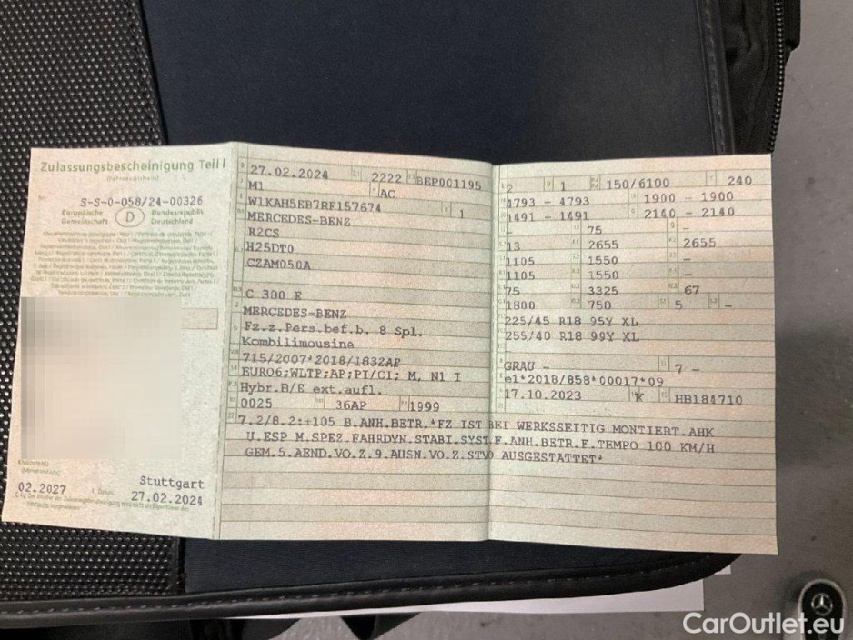 Zulassungsbescheinigung Teil I
(Fahrzeugschein)
S-S-0-058/24-00326
Europäische Gemeinschaft D Bundesrepublik Deutschland
Stuttgart
02.2027
27.02.2024
27.02.2024 2222 BEP001195
M1 AC
W1KAH5EB7RF157674 1
MERCEDES-BENZ
R2CS
H25DT0
CZAM050A
C 300 E
MERCEDES-BENZ
Fz.z.Pers.bef.b. 8 Spl.
Kombilimousine
715/2007*2018/1832AP
EURO6;WLTP;AP;PI/CI; M, N1 I
Hybr.B/E ext.aufl.
0025 36AP 1999
2 1 150/6100 240
4793 - 4793 1900 - 1900
1491 - 1491 2140 - 2140
- 75 -
13 2655 2655
1105 1550 -
1105 1550 -
75 3325 67
1800 750 5 -
225/45 R18 95Y XL
255/40 R18 99Y XL
GRAU - 7 -
e1*2018/858*00017*09
17.10.2023 K HB184710
7.2/8.2:+105 B.ANH.BETR.*FZ IST BEI WERKSSEITIG MONTIERT.AHK
U.ESP M.SPEZ.FAHRDYN.STABI.SYST.F.ANH.BETR.F.TEMPO 100 KM/H
GEM.5.AEND.VO.Z.9.AUSN.VO.Z.STVO AUSGESTATTET*
CarOutlet.eu